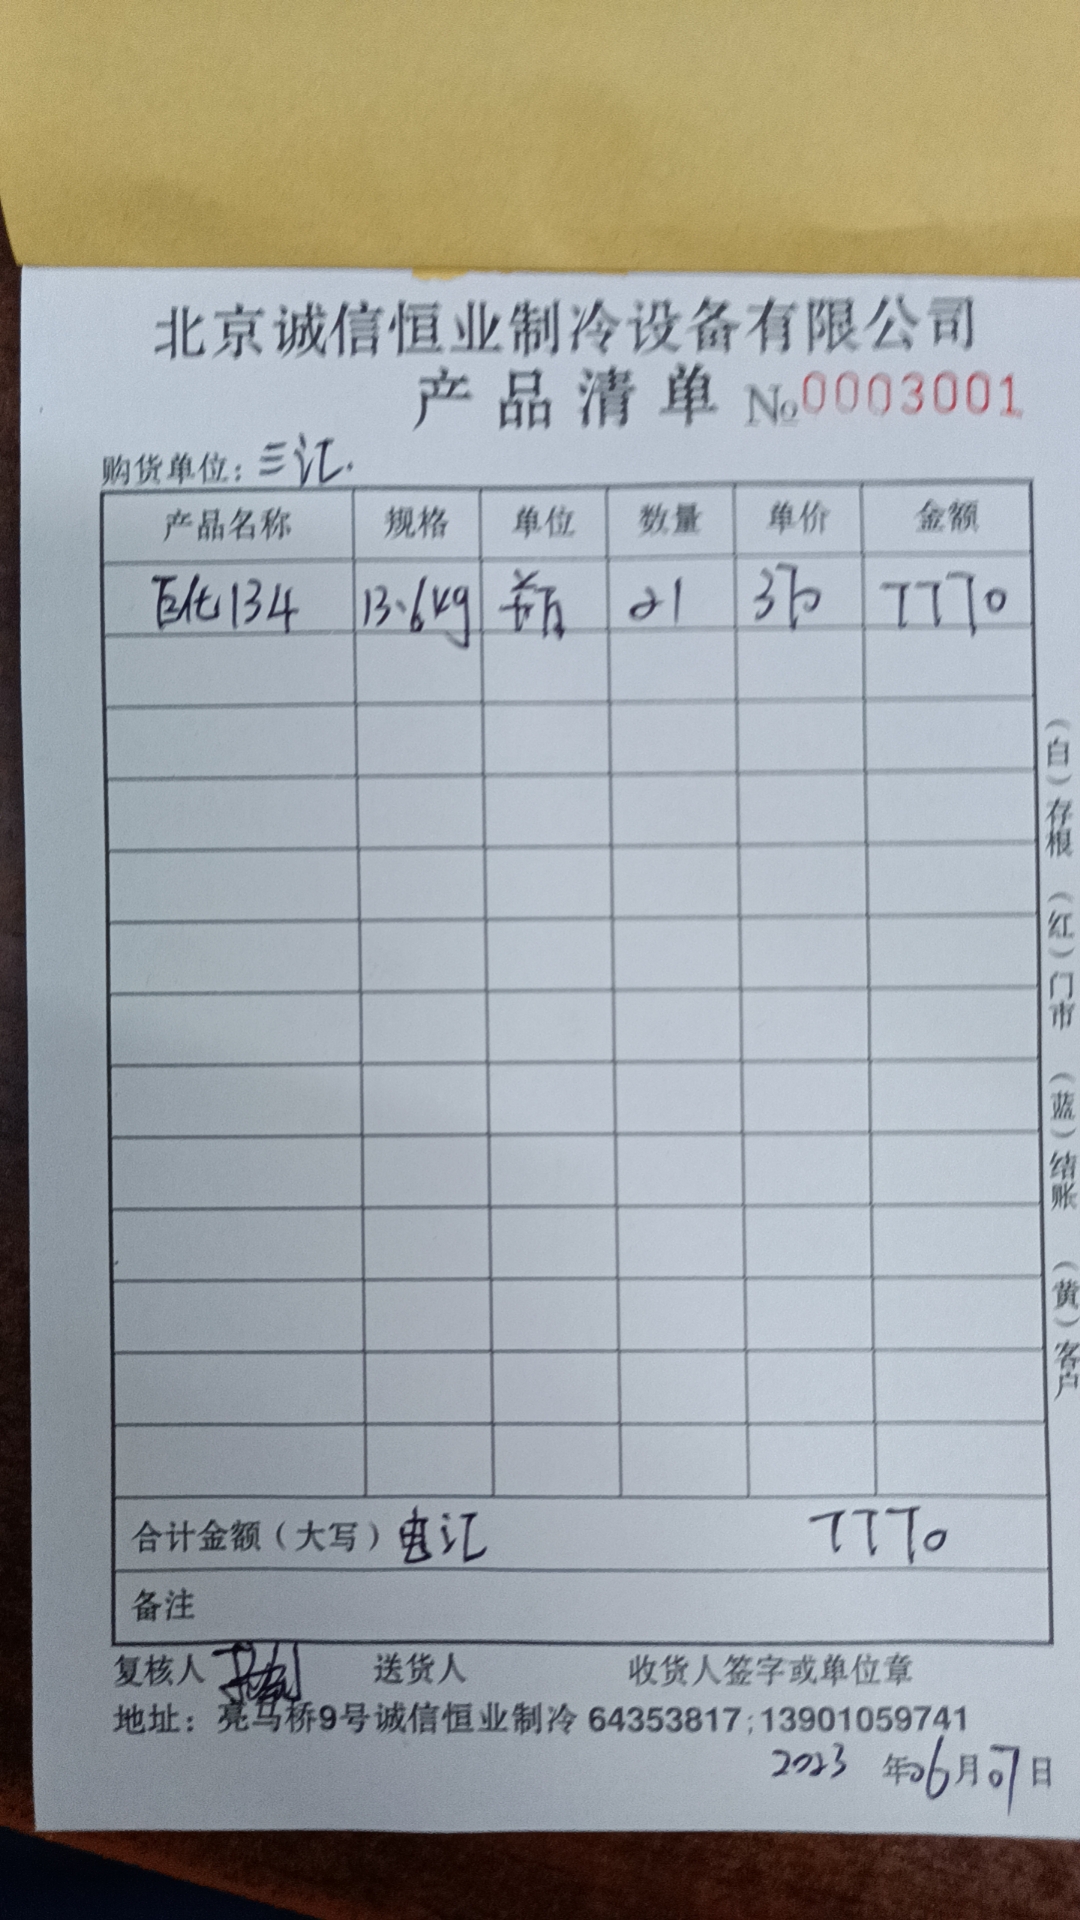 北京诚信恒业制冷设备有限公司
产品清单 №0003001
购货单位：三汇.
产品名称 规格 单位 数量 单价 金额
巨化134 13.6kg 瓶 21 370 7770
合计金额（大写）电汇 7770
备注
复核人 送货人 收货人签字或单位章
地址：亮马桥9号诚信恒业制冷 64353817;13901059741
2023 年06月07日
（白）存根 （红）门市 （蓝）结账 （黄）客户